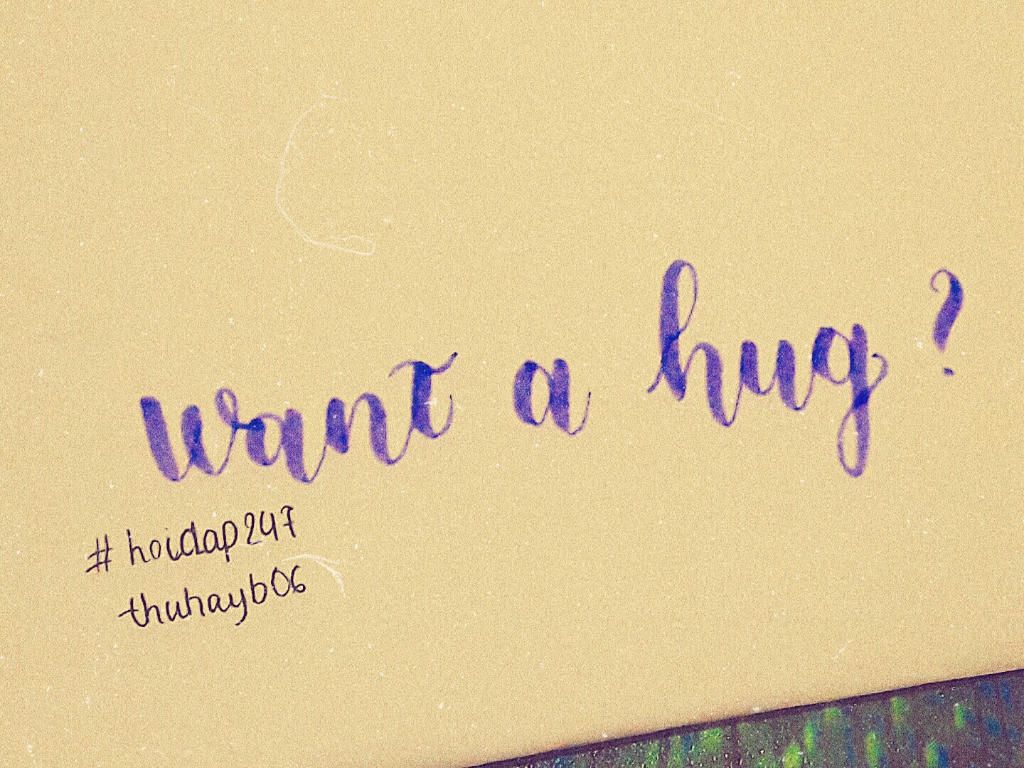 Want a hug?
# hoidap247
thuhayb06